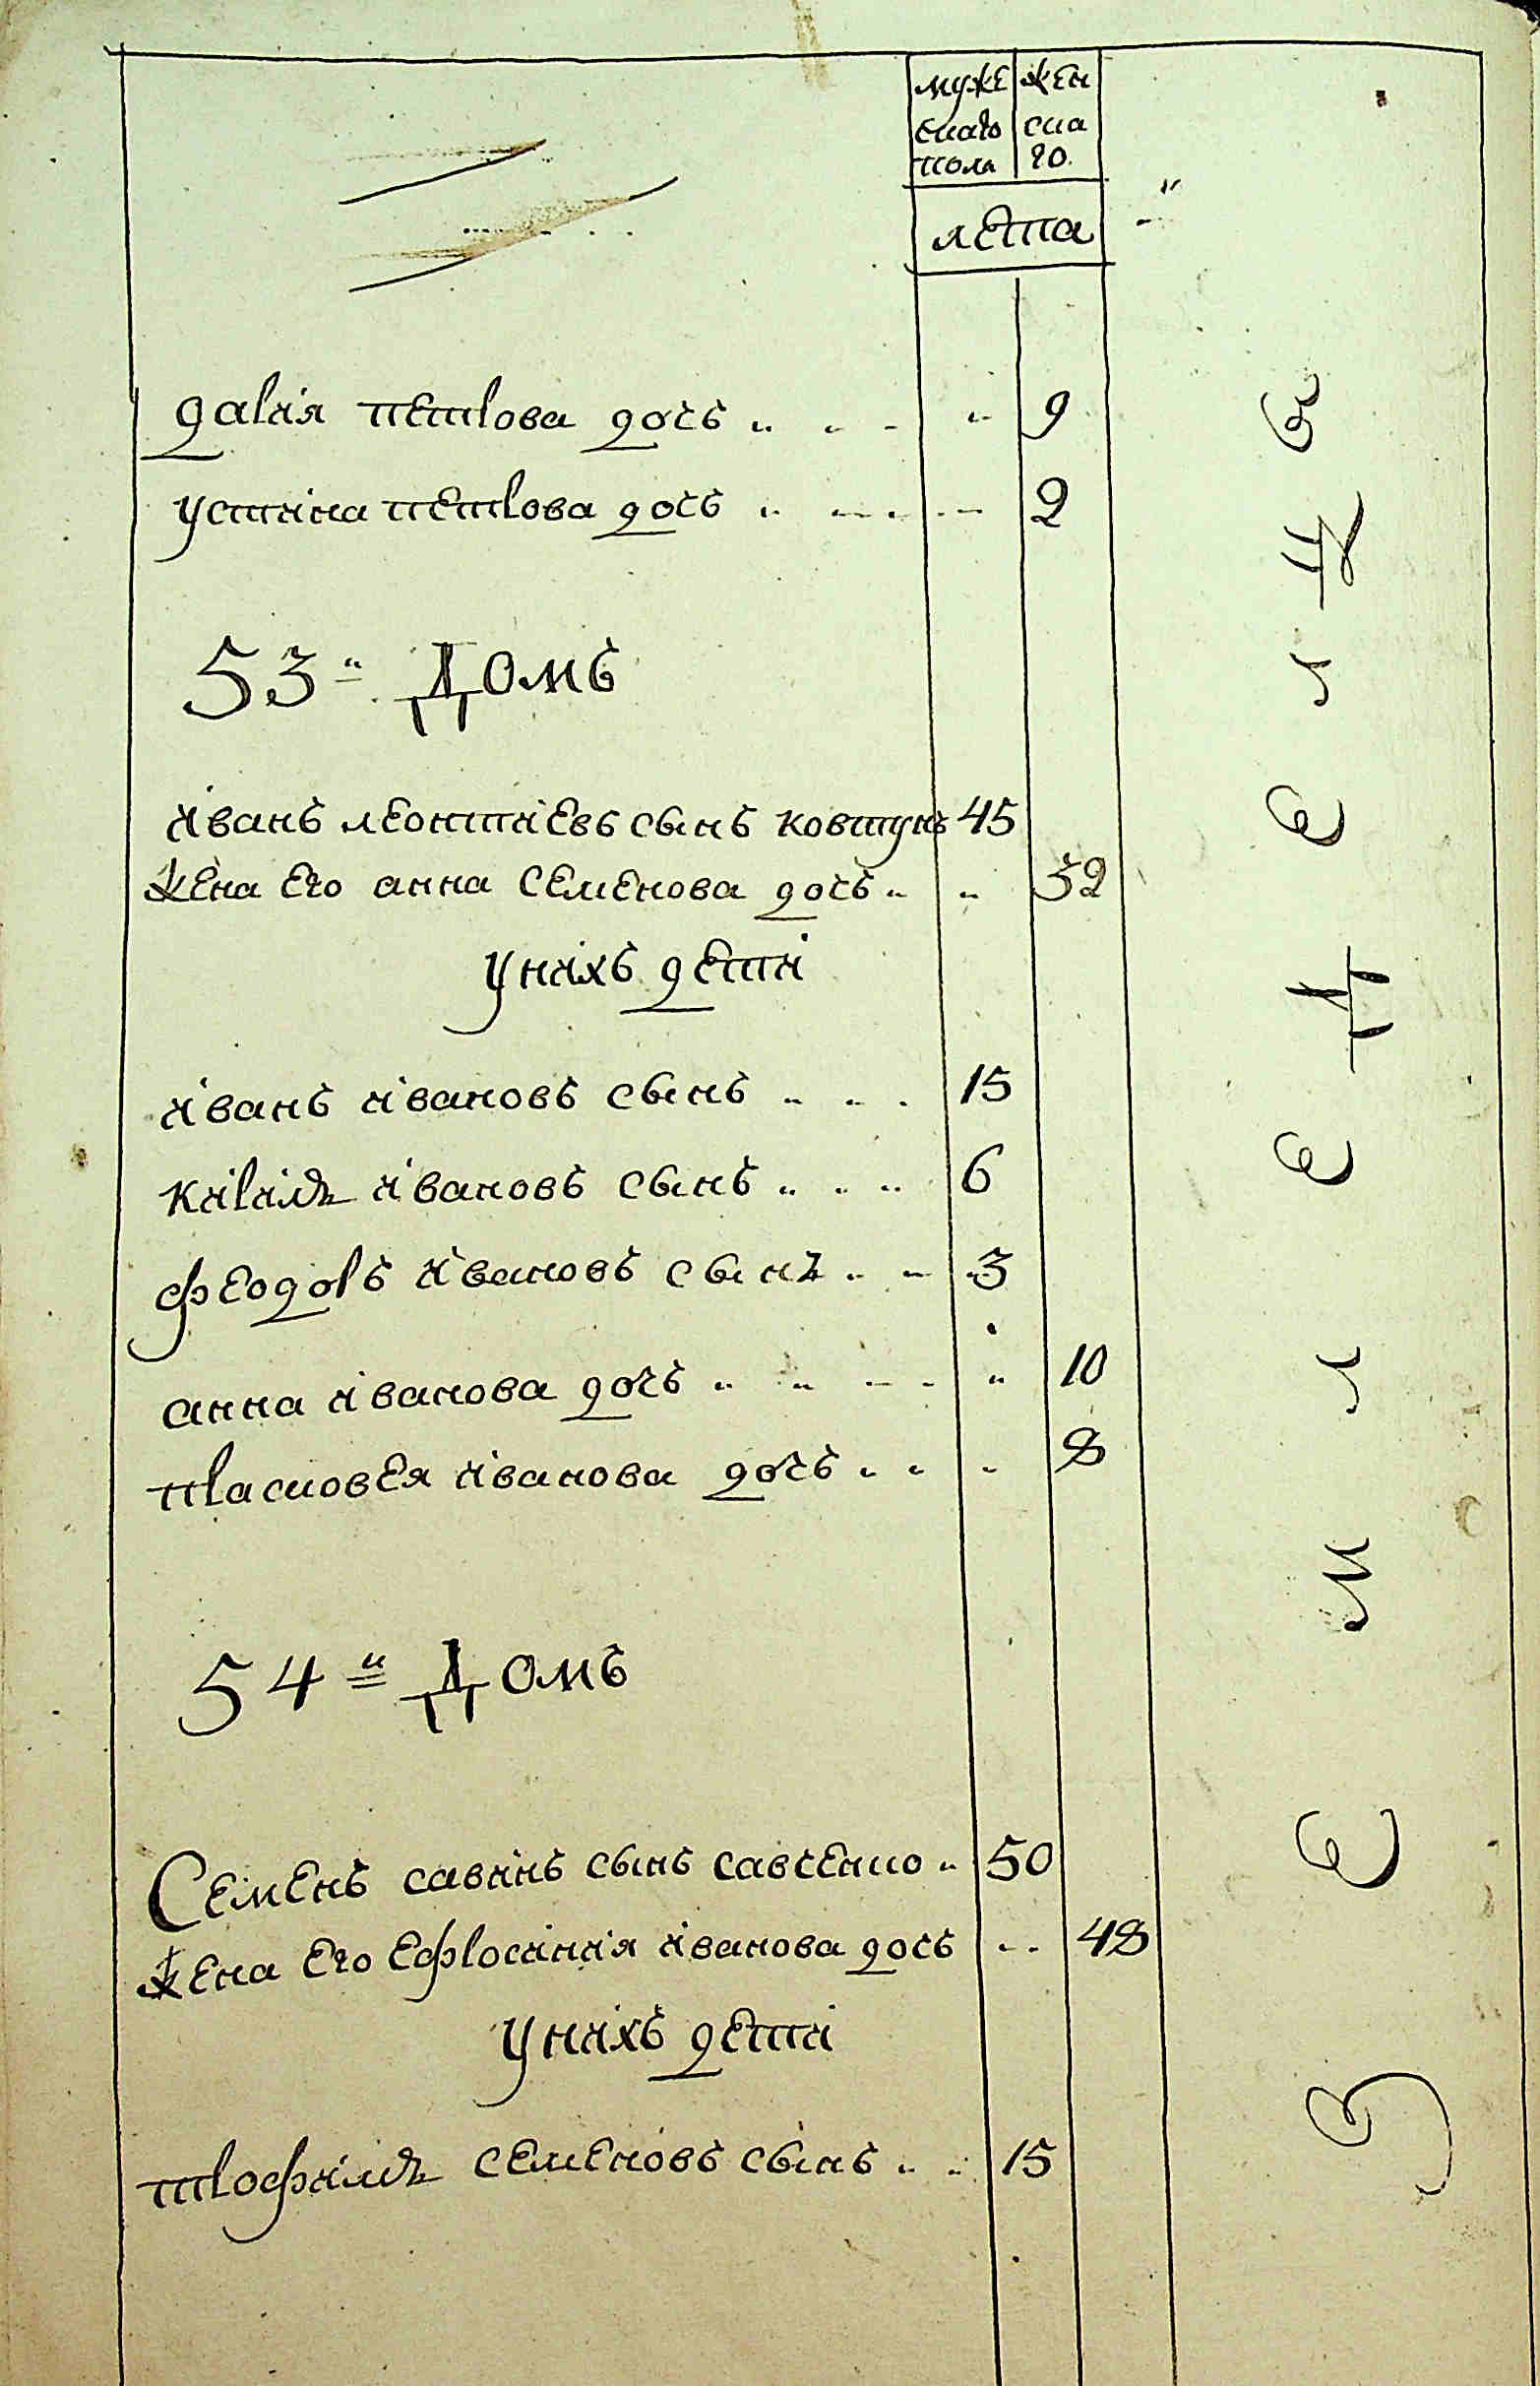 муже
скаго
пола
жен
ска
го.
лета
дария петрова дочь 9
устина петрова дочь 2
53 Домъ
иванъ леонтиевъ сынъ ковтунъ 45
жена его анна семенова дочь 32
у нихъ дети
иванъ ивановъ сынъ 15
кирилъ ивановъ сынъ 6
феодоръ ивановъ сынъ 3
анна иванова дочь 10
прасковея иванова дочь 8
54 Домъ
Семенъ савинъ сынъ савченко 50
жена его ефросиния иванова дочь 48
у нихъ дети
трофимъ семеновъ сынъ 15
земледелцы